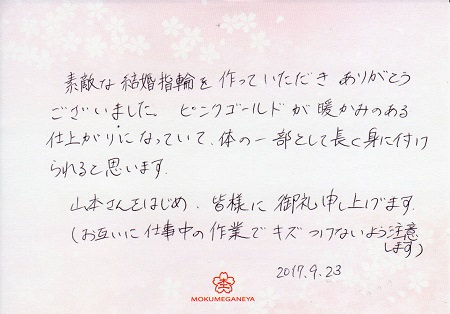 素敵な結婚指輪を作っていただき ありがとう
ございました。 ピンクゴールドが暖かみのある
仕上がりになっていて、体の一部として長く身に付け
られると思います.
山本さんをはじめ、皆様に御礼申し上げます.
(お互いに仕事中の作業でキズつけないよう注意
します)
2017.9.23
MOKUMEGANEYA